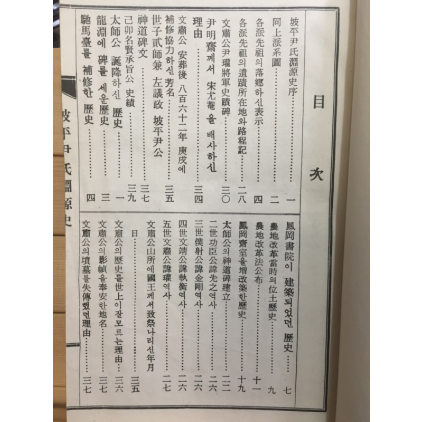 目次
坡平尹氏淵源史序 一
同上派系圖 二
各派先祖의 落鄕하신表示 四
各派先祖의 遺蹟所在地와路程記 二八
文肅公尹瓘將軍史蹟碑 三〇
尹明齋께서 宋尤菴을 배사하신
理由 三四
文肅公 安葬後 八百六十二年 庚戌에
補修協力하신署名 三五
世子貳師兼 左議政 坡平尹公
神道碑文 三七
己卯名賢承旨公 史蹟 三九
太師公 誕降하신 歷史 一
龍淵에 碑를 세운 歷史 三
馳馬臺를 補修한 歷史 四
鳳岡書院이 建築되었던 歷史 七
農地改革當時의位土歷史 九
農地改革法公布 十一
鳳岡齋室을增改築한歷史 十九
太師公의神道碑建立 二二
二世功臣公諱先之역사 二六
三世僕射公諱金剛역사 二六
四世文靖公諱執衡역사 二六
五世文肅公諱瓘역사 二七
文肅公山所에國王께서致祭나리신年月
日 三五
文肅公의歷史를世上이잘모르는理由 三六
文肅公의影幀을奉安한地名 三七
文肅公의墳墓를失傳했던理由 三七
坡平尹氏淵源史